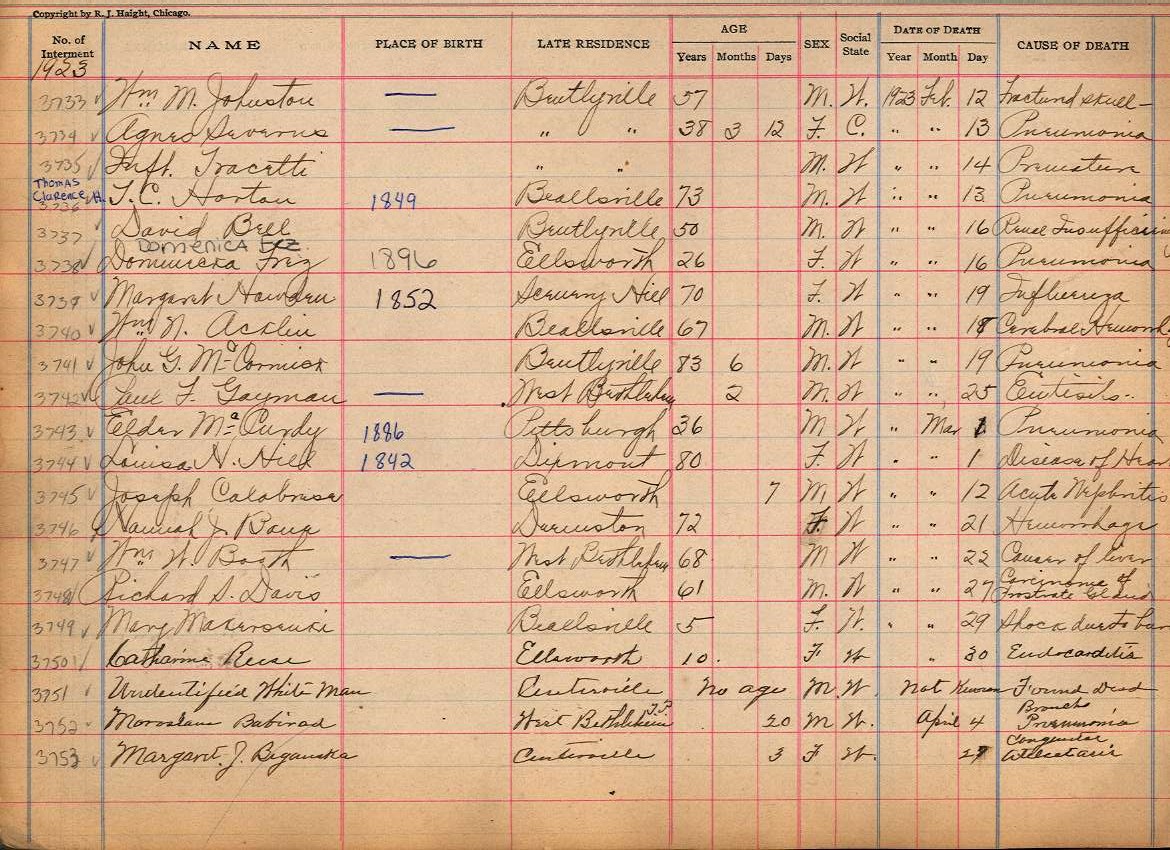 Copyright by R. J. Haight, Chicago.
No. of Interment NAME PLACE OF BIRTH LATE RESIDENCE AGE Years Months Days SEX Social State DATE OF DEATH Year Month Day CAUSE OF DEATH
1923
3733 Wm M. Johnston — Bentlyville 57 M. W. 1923 Feb. 12 Fractured skull
3734 Agnes Severns — " " 38 3 12 F. C. " " 13 Pneumonia
3735 Inft. Tracetti " " M. W " " 14 Premature
Thomas Clarence H.
3736 T. C. Horton 1849 Beallsville 73 M. W " " 13 Pneumonia
3737 David Bell Bentlyville 50 M. W " " 16 Renal Insufficien
Domenica Frez
3738 Dominicka Frez 1896 Ellsworth 26 F. W " " 16 Pneumonia
3739 Margaret Hawden 1852 Scenery Hill 70 F. W " " 19 Influenza
3740 Wm N. Acklin Beallsville 67 M. W " " 18 Cerebral Hemorrh
3741 John G. McCormick Bentlyville 83 6 M. W " " 19 Pneumonia
3742 Paul F. Gayman — West Bethlehem 2 M. W. " " 25
3743 Elder McCurdy 1886 Pittsburgh 36 M W " Mar 1 Pneumonia
3744 Louisa N. Hill 1842 Dixmont 80 F. W " " 1 Disease of Hear
3745 Joseph Calabrese Ellsworth 7 M W " " 12 Acute Nephritis
3746 Hannah J. 72 F. W " " 21 Hemorrhage
3747 Wm W. Booth — West Bethlehem 68 M W " " 22 Cancer of liver
3748 Richard S. Davis Ellsworth 61 M. W " " 27 Carcinoma of Prostrate Gland
3749 Mary Beallsville 5 F. W. " " 29 Shock due to bur
3750 Catharine Reese Ellsworth 10. F W " 30 Endocarditis
3751 Unidentified White Man Centerville No age M. W. Not Known Found Dead
3752 Babirad West Bethlehem T.P. 20 M W. April 4 Broncho Pneumonia
3753 Margaret J. Biganska Centerville 3 F W. 27